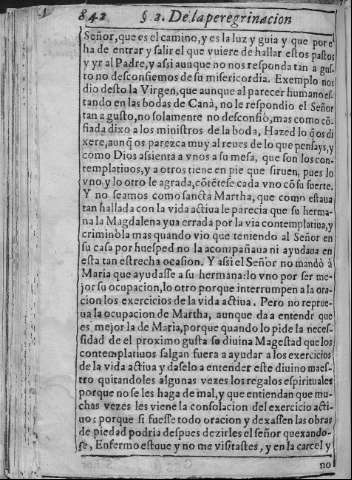 842 § 2. De la peregrinacion
Señor, que es el camino, y es la luz y guia y que por e
ha de entrar y salir el que vuiere de hallar estos pastos
y yr al Padre, y assi aunque no nos responda tan a gus-
to no desconfiemos de su misericordia. Exemplo nos
dio desto la Virgen, que aunque al parecer humano es-
tando en las bodas de Canà, no le respondio el Señor
tan a gusto, no solamente no desconfiò, mas como cõ-
fiada dixo a los ministros de la boda, Hazed lo q̃ os di
xere, aunq̃ os parezca muy al reues de lo que pensays, y
como Dios assienta a vnos a su mesa, que son los con-
templatiuos, y a otros tiene en pie que siruen, pues lo
vno y lo otro le agrada, cõtẽtese cada vno cõ su suerte.
Y no seamos como sancta Martha, que como estaua
tan hallada con la vida actiua le parecia que su herma-
na la Magdalena yua errada por la via contemplatiua, y
criminòla mas quando vio que teniendo al Señor en
su casa por huesped no la acompañaua ni ayudaua en
esta tan estrecha ocasion. Y assi el Señor no mandò à
Maria que ayudasse a su hermana: lo vno por ser me-
jor su ocupacion, lo otro porque interrumpen a la ora-
cion los exercicios de la vida actiua. Pero no repre-
ua la ocupacion de Martha, aunque da a entender que
es mejor la de Maria, porque quando lo pide la neces-
sidad de el proximo gusta su diuina Magestad que los
contemplatiuos salgan fuera a ayudar a los exercicios
de la vida actiua y daselo a entender este diuino maes-
tro quitandoles algunas vezes los regalos espirituales
porque no se les haga de mal, y que entiendan que mu-
chas vezes les viene la consolacion del exercicio acti-
uo: porque si fuesse todo oracion y dexassen las obras
de piedad podria despues dezirles el señor quexando-
se, Enfermo estuue y no me visitastes, y en la carcel y
no